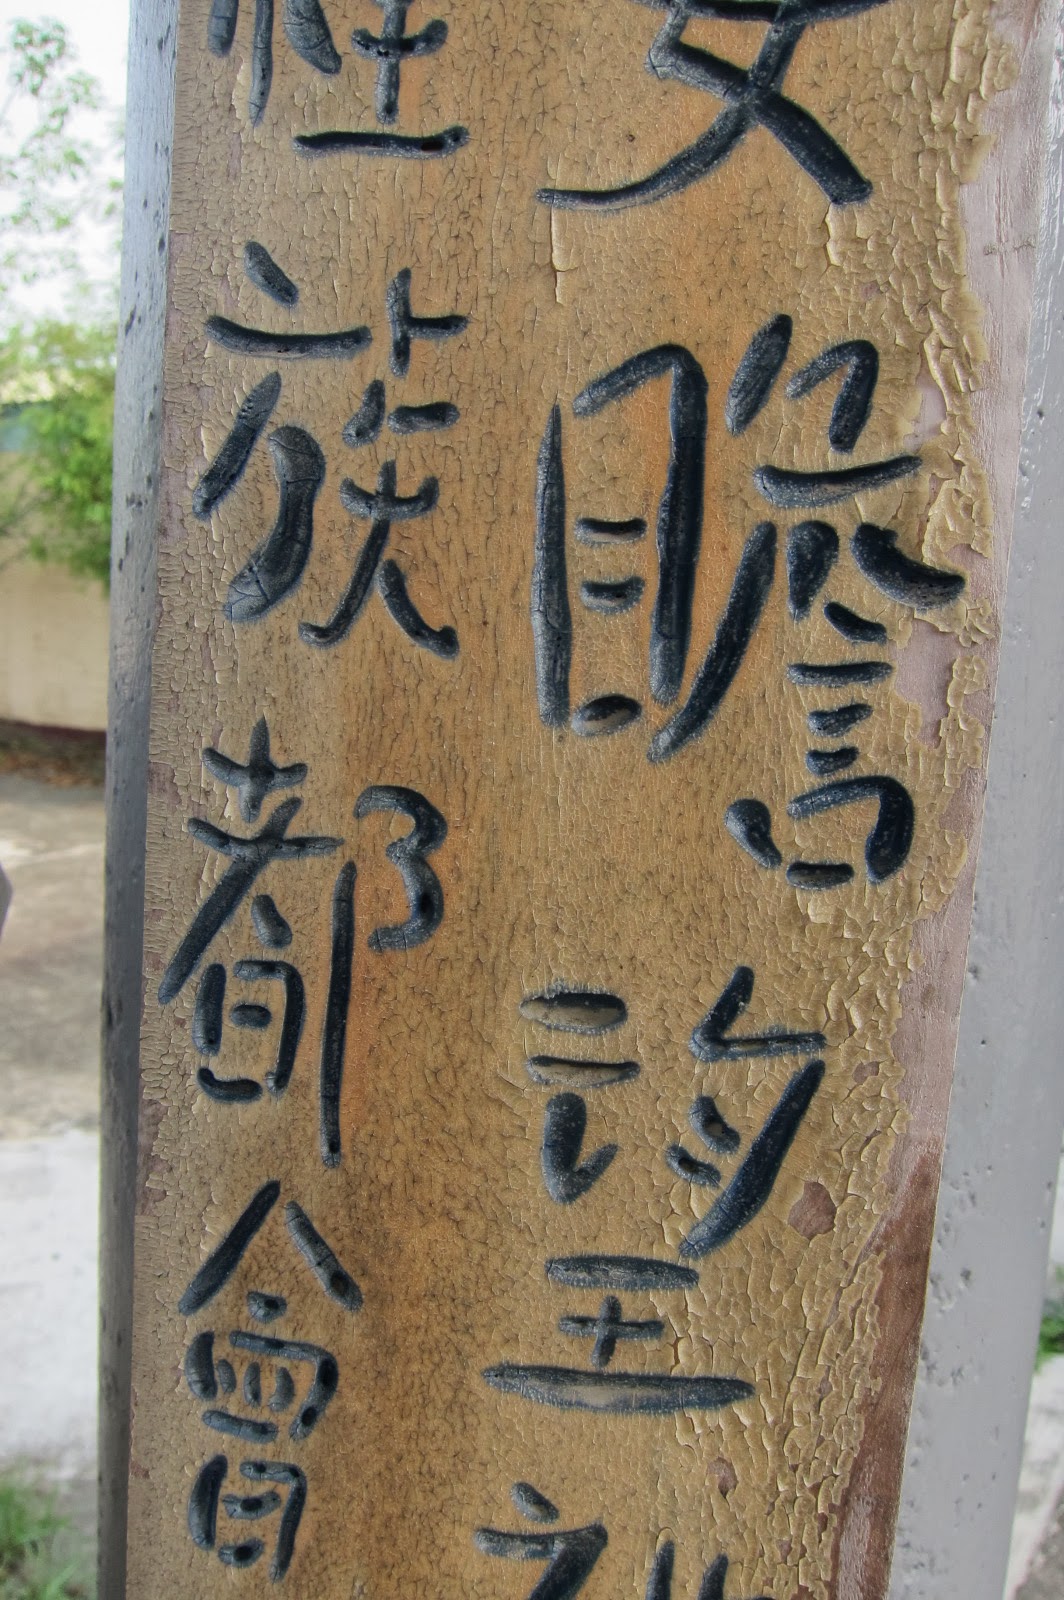 瞻望
種族都會